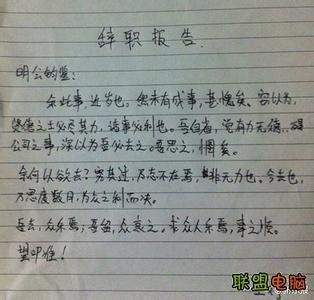 辞职报告
明公钧鉴：
余此事，近岁也。然未有成事，甚愧矣。窃以为，
贤德之士必尽其力，诸事必利也。吾自省，觉有力无德，碍
公司之事，深以为吾必去之。吾思之，惘矣。
余何以欲去？究其过，乃志不在焉，非无力也。今去也，
乃思虑数月，为众之利而决。
吾去，众乐焉；吾留，众哀之。求众人乐焉，事之顺。
望叩准！
联盟电脑